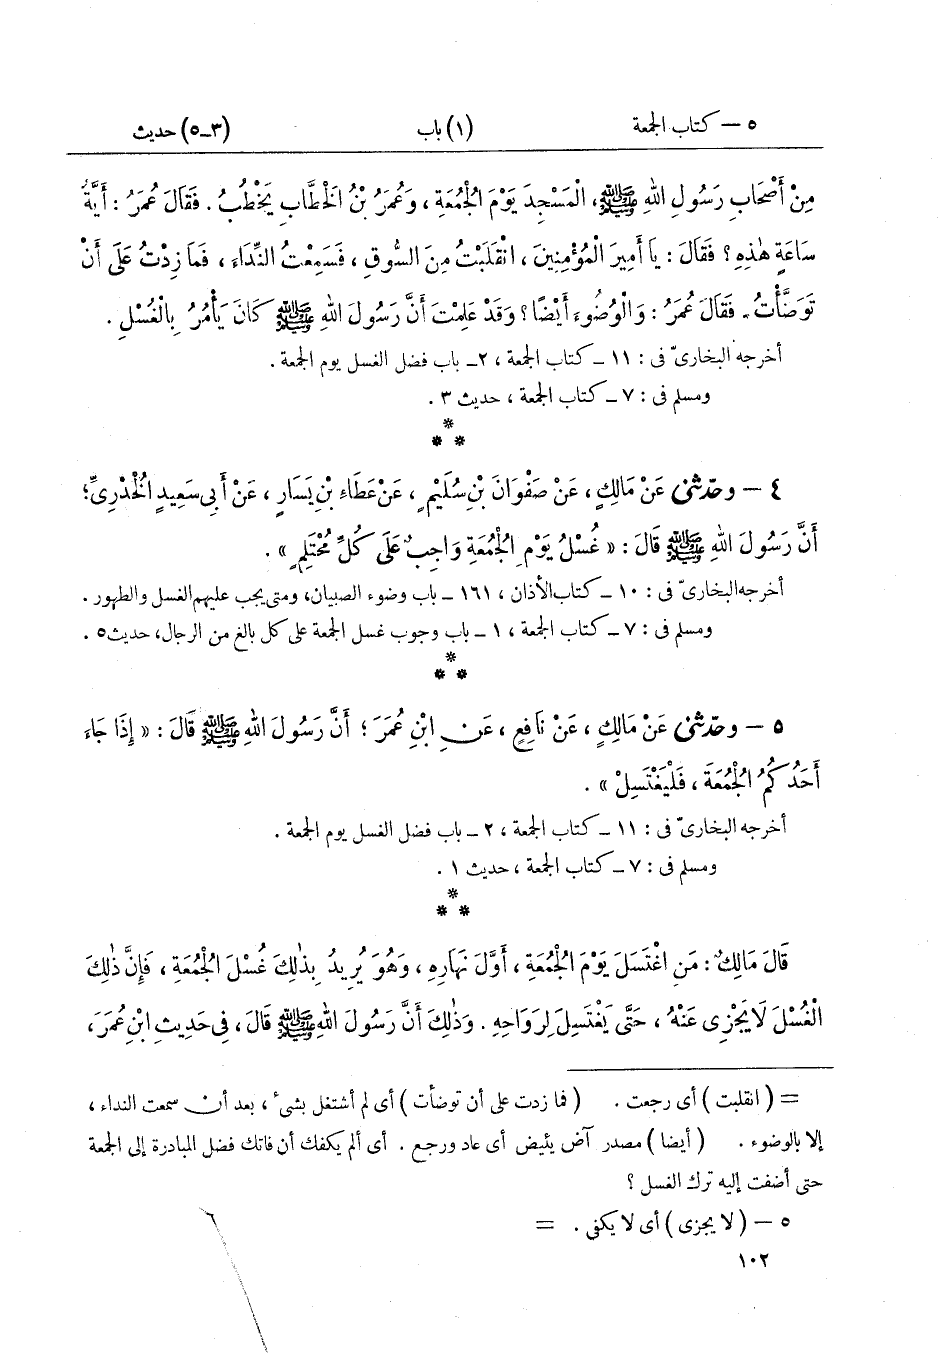 ٥ – كتاب الجمعة (١) باب (٣ـ٥) حديث
مِنْ أَصْحَابِ رَسُولِ اللهِ ﷺ، الْمَسْجِدَ يَوْمَ الْجُمُعَةِ ، وَعُمَرُ بْنُ الْخَطَّابِ يَخْطُبُ . فَقَالَ عُمَرُ : أَيَّةُ
سَاعَةٍ هٰذِهِ ؟ فَقَالَ : يَا أَمِيرَ الْمُؤْمِنِينَ ، انْقَلَبْتُ مِنَ السُّوقِ ، فَسَمِعْتُ النِّدَاءَ ، فَمَا زِدْتُ عَلَى أَنْ
تَوَضَّأْتُ . فَقَالَ عُمَرُ : وَالْوُضُوءَ أَيْضًا ؟ وَقَدْ عَلِمْتَ أَنَّ رَسُولَ اللهِ ﷺ كَانَ يَأْمُرُ بِالْغُسْلِ .
أخرجه البخارىّ فى : ١١ ـ كتاب الجمعة ، ٢ـ باب فضل الغسل يوم الجمعة .
ومسلم فى : ٧ ـ كتاب الجمعة ، حديث ٣ .
*
* *
٤ – وحدّثنى عَنْ مَالِكٍ ، عَنْ صَفْوَانَ بْنِ سُلَيْمٍ ، عَنْ عَطَاءِ بْنِ يَسَارٍ ، عَنْ أَبِى سَعِيدٍ الْخُدْرِىِّ ؛
أَنَّ رَسُولَ اللهِ ﷺ قَالَ : « غُسْلُ يَوْمِ الْجُمُعَةِ وَاجِبٌ عَلَى كُلِّ مُحْتَلِمٍ » .
أخرجه البخارىّ فى : ١٠ ـ كتاب الأذان ، ١٦١ ـ باب وضوء الصبيان، ومتى يجب عليهم الغسل والطهور .
ومسلم فى : ٧ ـ كتاب الجمعة ، ١ ـ باب وجوب غسل الجمعة على كل بالغ من الرجال، حديث ٥ .
*
* *
٥ – وحدّثنى عَنْ مَالِكٍ ، عَنْ نَافِعٍ ، عَنِ ابْنِ عُمَرَ ؛ أَنَّ رَسُولَ اللهِ ﷺ قَالَ : « إِذَا جَاءَ
أَحَدُكُمُ الْجُمُعَةَ ، فَلْيَغْتَسِلْ » .
أخرجه البخارىّ فى : ١١ ـ كتاب الجمعة ، ٢ ـ باب فضل الغسل يوم الجمعة .
ومسلم فى : ٧ ـ كتاب الجمعة ، حديث ١ .
*
* *
قَالَ مَالِكٌ : مَنِ اغْتَسَلَ يَوْمَ الْجُمُعَةِ ، أَوَّلَ نَهَارِهِ ، وَهُوَ يُرِيدُ بِذٰلِكَ غُسْلَ الْجُمُعَةِ ، فَإِنَّ ذٰلِكَ
الْغُسْلَ لَا يَجْزِى عَنْهُ ، حَتَّى يَغْتَسِلَ لِرَوَاحِهِ . وَذٰلِكَ أَنَّ رَسُولَ اللهِ ﷺ قَالَ ، فِى حَدِيثِ ابْنِ عُمَرَ ،
= ( انقلبت ) أى رجعت . ( فما زدت على أن توضأت ) أى لم أشتغل بشىء ، بعد أن سمعت النداء ،
إلا بالوضوء . ( أيضا ) مصدر آض يئيض أى عاد ورجع . أى ألم يكفك أن فاتك فضل المبادرة إلى الجمعة
حتى أضفت إليه ترك الغسل ؟
٥ – ( لا يجزى ) أى لا يكفى . =
١٠٢